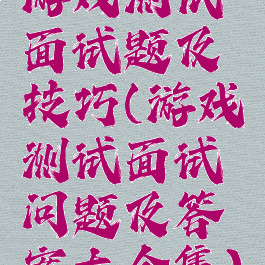 游戏测试
面试题及
技巧(游戏
测试面试
问题及答
案大全集)